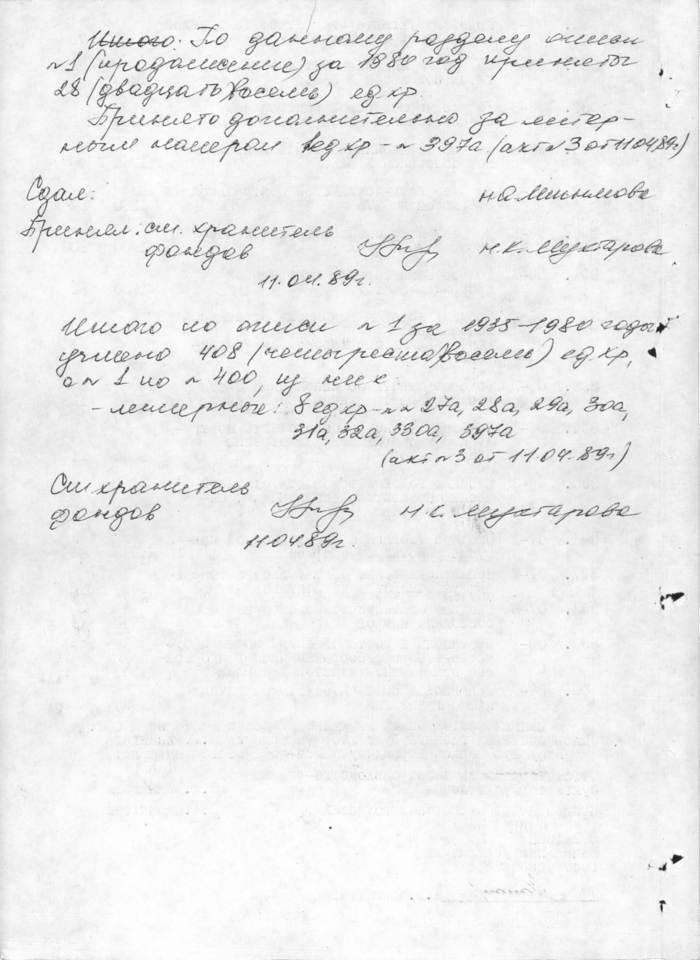 Итого: По данному разделу описи
№1 (продолжение) за 1980 год приняты
28 (двадцать восемь) ед хр.
Принято дополнительно за литер-
ным номером 1 ед хр - № 397а (акт №3 от 11 04 89г)
Сдал:
Принял: ст. хранитель
фондов Н.К. Мухтарова
11.04.89г.
Итого по описи №1 за 1935-1980 годы
учтено 408 (четыреста восемь) ед. хр,
с №1 по №400, из них:
- литерные: 8 ед хр - №№ 27а, 28а, 29а, 30а,
31а, 32а, 330а, 397а
(акт №3 от 11 04.89г)
Ст хранитель
фондов Н.К. Мухтарова
11 04 89г.